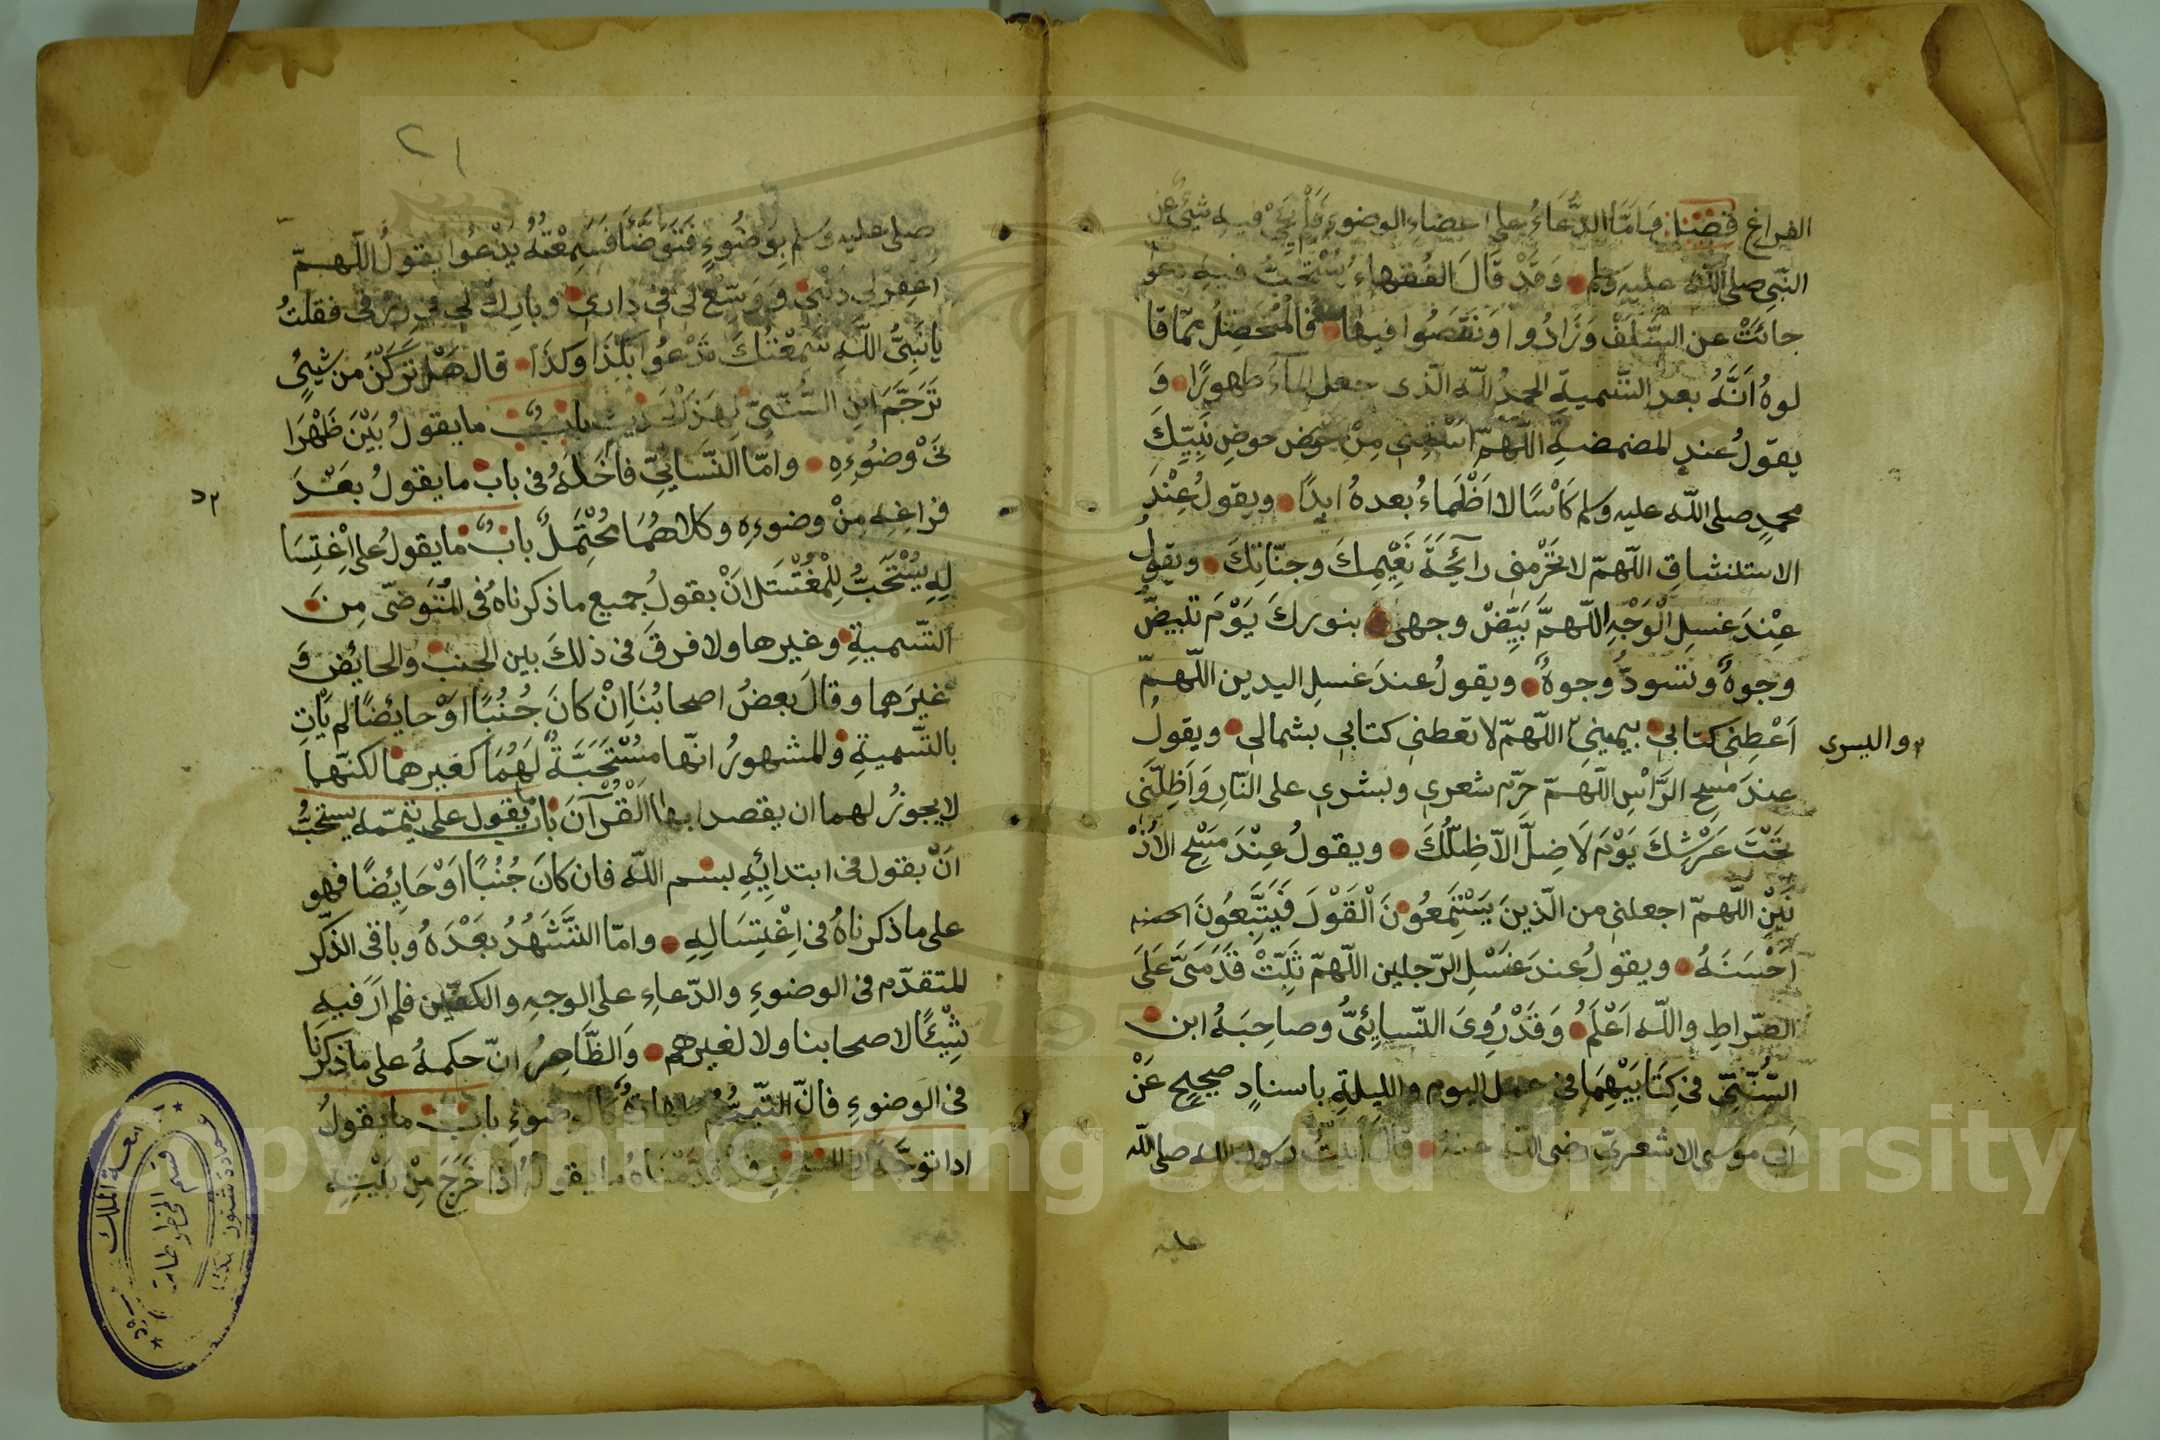 الفراغ فصل واَمّا الدُّعَاءُ على اعضاءِ الوضوءِ فلَمْ يَجِئْ فيه شيءٌ عن
النّبي صلى الله عليه وسلم وَقَدْ قَالَ الفقهاءُ يُسْتَحَبُّ فيه دعو
جائَتْ عن السَّلَفْ وَزَادُوا وَنَقَصُوا فيها فالمُتَحَصِّلُ ممّا قا
لوهُ اَنَّهُ بعد التّسميةِ الحمدُ لله الّذى جعل المآءَ طهورًا وَ
يقوّلُ عند المضمضةِ اللّهمّ اسْقِنِي مِنْ حوض حوضِ نَبِيِّكَ
محمدٍ صلى اللّه عليه وسلم كَاْسًا لا اَظْمَاءُ بعدهُ ابدًا ويقولُ عِنْدَ
الاستنشاقِ اللّهمّ لا تَحْرْمنى رآئِحَةَ نَعِيْمِكَ وجنّاتِكَ ويقولُ
عِنْدَ غسلِ الْوَجْهِ اللّهمَّ بَيِّضْ وجهى بنورك يَوْمَ تبيضُّ
وجوهٌ وتسودُّ وجوهٌ ويقولُ عندَ غسلِ اليدين اللّهمّ
اَعْطِنى كتابي بيميني اللّهمّ لا تعطنى كتابى بشمالى ويقولُ
م واليسرى
عندَ مسحِ الرَّاْسِ اللّهمّ حرّم شعري وبشري على النّارِ وَاَظِلَّنى
تَحْتَ عَرْشِكَ يَوْمَ لَا ضِلَّ الاّ ظِلُّكَ ويقولُ عِنْدَ مَسْحِ الاُذُ
نَيْنِ اللّهمّ اجعلنى من الّذينَ يَسْتَمِعُونَ الْقَوْلَ فَيَتَّبِعُونَ
اَحْسَنَهُ ويقولُ عندَ غَسْلِ الرّجلين اللّهمّ ثَبِّتْ قَدَمَىَّ عَلَى
الصّراطِ واللّه اَعْلَمُ وَقَدْ رُوِىَ النّسائِىُّ وصاحِبَهُ ابن
السُّنِّيِّ فى كِتَابَيْهِمَا فى عمل اليوم والليلةِ باسنادٍ صحيحٍ عَنْ
ابى موسى الاشعريّ رضى اللّه عنه قال اتيتُ رسول الله صلى اللّه
عليه
٢١
صلى عليه وسلم بِوَضُوءٍ فَتَوَضَّأَ فَسَمِعْتُهُ يَدْعُوا يقولُ اللّهمّ
اغفِرْلى ذَنْبى وَوَسِّعْ لى فى دارى وبارك لى فى رزقى فقلتُ
يا نَبِيَّ اللّهِ سَمِعْتُكَ تدْعُوا بكذَا وَكذَا قال هَلْ تَرَكْنَ من شيئٍ
تَرَجَّمَ ابن السُّنّىِّ لِهَذَا الحديث بابُ ما يقولُ بَيْنَ ظَهْرَا
نَىْ وضُوءِهِ وامّا النّسائِيّ فاَخَلَهُ فى باب ما يقولُ بَعْدَ
فَراغِهِ مِنْ وضوءِهِ وكلاهُمَا مُحْتَمَلٌ بابٌ ما يقولُ على اغْتِسَا
لِهِ يُسْتَحَبُّ لِلْمُغْتَسَل اَنْ يقولُ جميع ما ذكرناهُ فى المُتَوضّى مِنَ
التّسميةِ وغيرها ولا فرقَ فى ذلكَ بين الجنبِ والحايئض وَ
غيرَهما وقالَ بعضُ اصحابُنَا اِنْ كانَ جُنُبًا اَوْ حايئضًا لم يَاْتِ
بالتّسميةِ والمشهورُ انّها مُسْتَحَبَّةٌ لَهُمَا كغيرهمَا لكنّهما
لا يجوزُ لهما ان يقصدا بها الْقُرْآنَ باب ما يقول على تيمّمه يستحبُّ
اَنْ يقول فى ابتدائِهِ بسم اللّه فان كانَ جُنُبًا اَوْ حَايِئضًا فهو
على ما ذكرناهُ فى اغْتِسَالِهِ وامّا التَّشَهُدُ بَعْدَهُ وباقى الذّكر
المتقدّم فى الوضوءِ والدّعاءِ على الوجهِ والكفّين فلم اَرَ فيه
شِيْئًا لاصحابنا ولا لغيرهم وَالظَّاهِرُ انّ حكمهُ على ما ذكرنَا
فى الوضوءِ فانّ التّيمُّم طهارةٌ كالوضوءِ باب ما يقولُ
اذا توجّه الى المسجد قد قدّمْنَاهُ ما يقولُ اِذا خَرَجَ مِنْ بَيْتِهِ
جامعة الملك سعود
عمادة شئون المكتبات
قسم المخطوطات
Copyright © King Saud University
1957